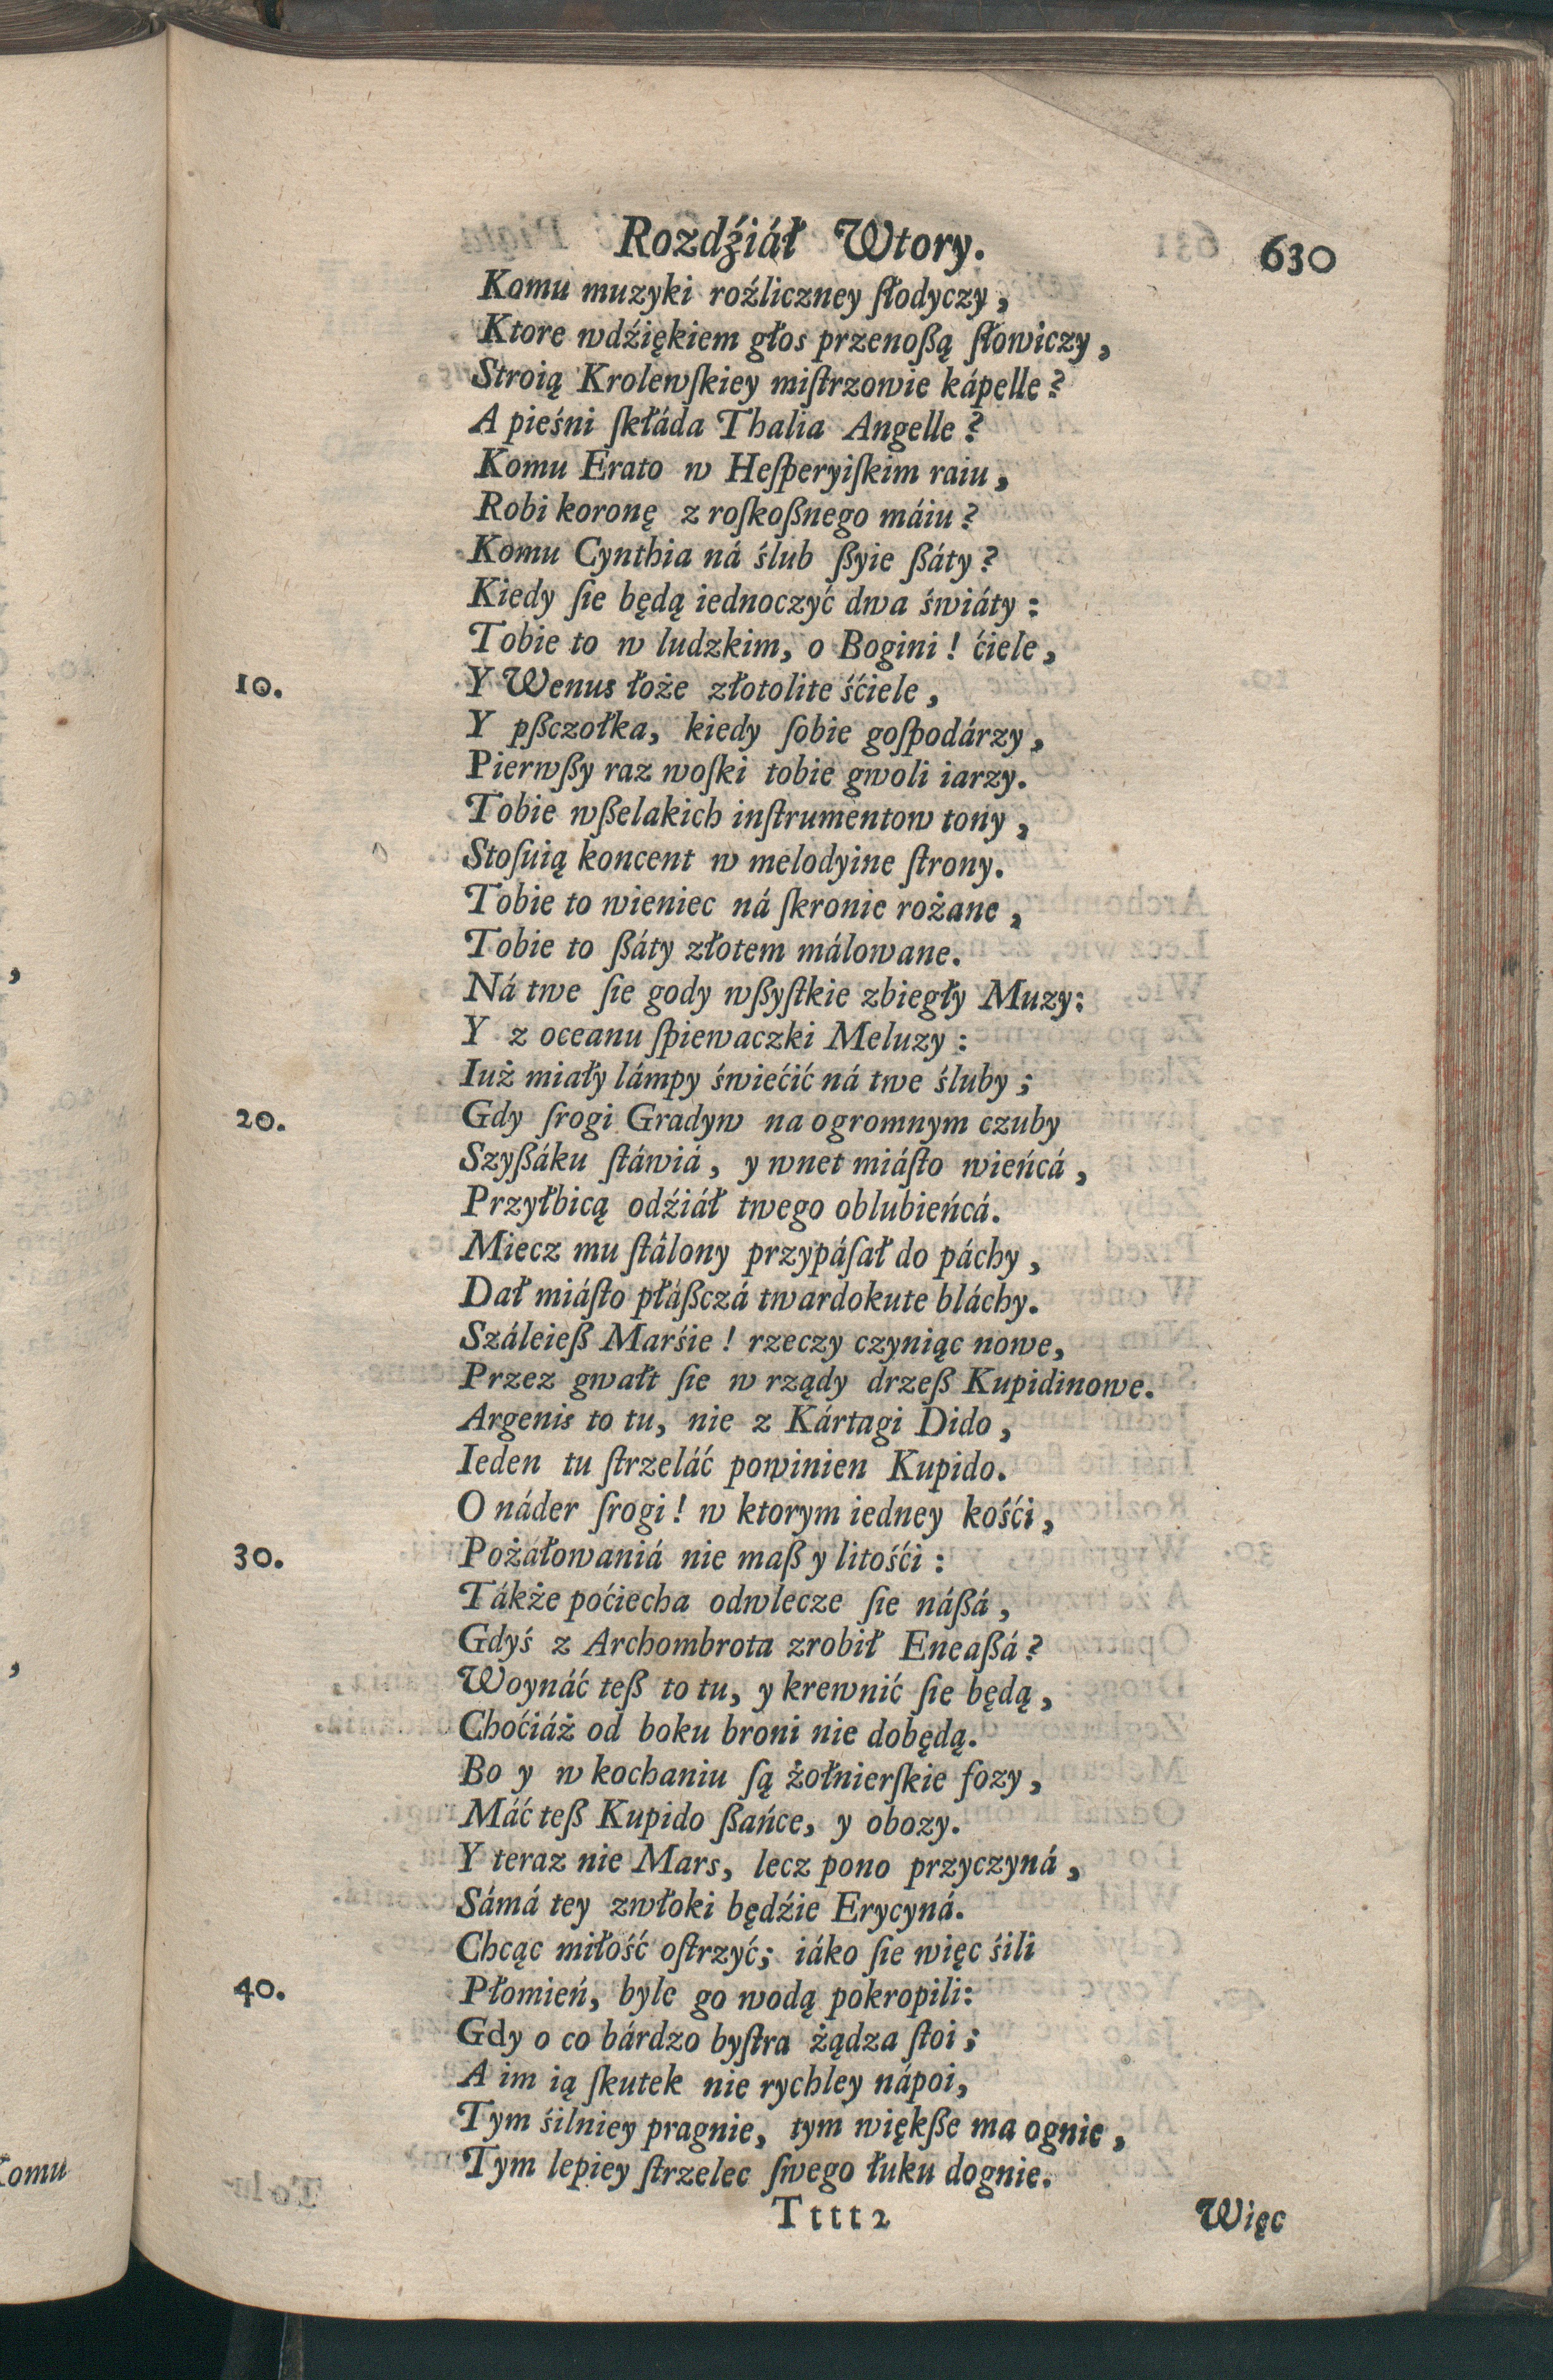 Rozdźiáł Wtory.
630
Komu muzyki roźliczney ſłodyczy,
Ktore wdźiękiem głos przenoßą ſłowiczy,
Stroią Krolewſkiey miſtrzowie kápelle?
A pieśni ſkłáda Thalia Angelle?
Komu Erato w Heſperyiſkim raiu,
Robi koronę z roſkoßnego máiu?
Komu Cynthia ná ślub ßyie ßáty?
Kiedy ſie będą iednoczyć dwa świáty:
Tobie to w ludzkim, o Bogini! ćiele,
10. Y Wenus łoże złotolite śćiele,
Y pßczołka, kiedy ſobie goſpodárzy,
Pierwßy raz woſki tobie gwoli iarzy.
Tobie wßelakich inſtrumentow tony,
Stoſuią koncent w melodyine ſtrony.
Tobie to wieniec ná ſkronie rożane,
Tobie to ßáty złotem málowane.
Ná twe ſie gody wßyſtkie zbiegły Muzy:
Y z oceanu ſpiewaczki Meluzy:
Iuż miały lámpy świećić ná twe śluby;
20. Gdy ſrogi Gradyw na ogromnym czuby
Szyßáku ſtáwiá, y wnet miáſto wieńcá,
Przyłbicą odźiáł twego oblubieńcá.
Miecz mu ſtálony przypáſał do páchy,
Dał miáſto płáßczá twardokute bláchy.
Száleieß Marśie! rzeczy czyniąc nowe,
Przez gwałt ſie w rządy drzeß Kupidinowe.
Argenis to tu, nie z Kártagi Dido,
Ieden tu ſtrzeláć powinien Kupido.
O náder ſrogi! w ktorym iedney kośći,
30. Pożałowaniá nie maß y litośći:
Tákże poćiecha odwlecze ſie náßá,
Gdyś z Archombrota zrobił Eneaßá?
Woynáć teß to tu, y krewnić ſie będą,
Choćiáż od boku broni nie dobędą.
Bo y w kochaniu ſą żołnierſkie fozy,
Máć teß Kupido ßańce, y obozy.
Y teraz nie Mars, lecz pono przyczyná,
Sámá tey zwłoki będźie Erycyná.
Chcąc miłość oſtrzyć; iáko ſie więc śili
40. Płomień, byle go wodą pokropili:
Gdy o co bárdzo byſtra żądza ſtoi;
A im ią ſkutek nie rychley nápoi,
Tym śilniey pragnie, tym więkße ma ognie,
Tym lepiey ſtrzelec ſwego łuku dognie.
Tttt2
Więc